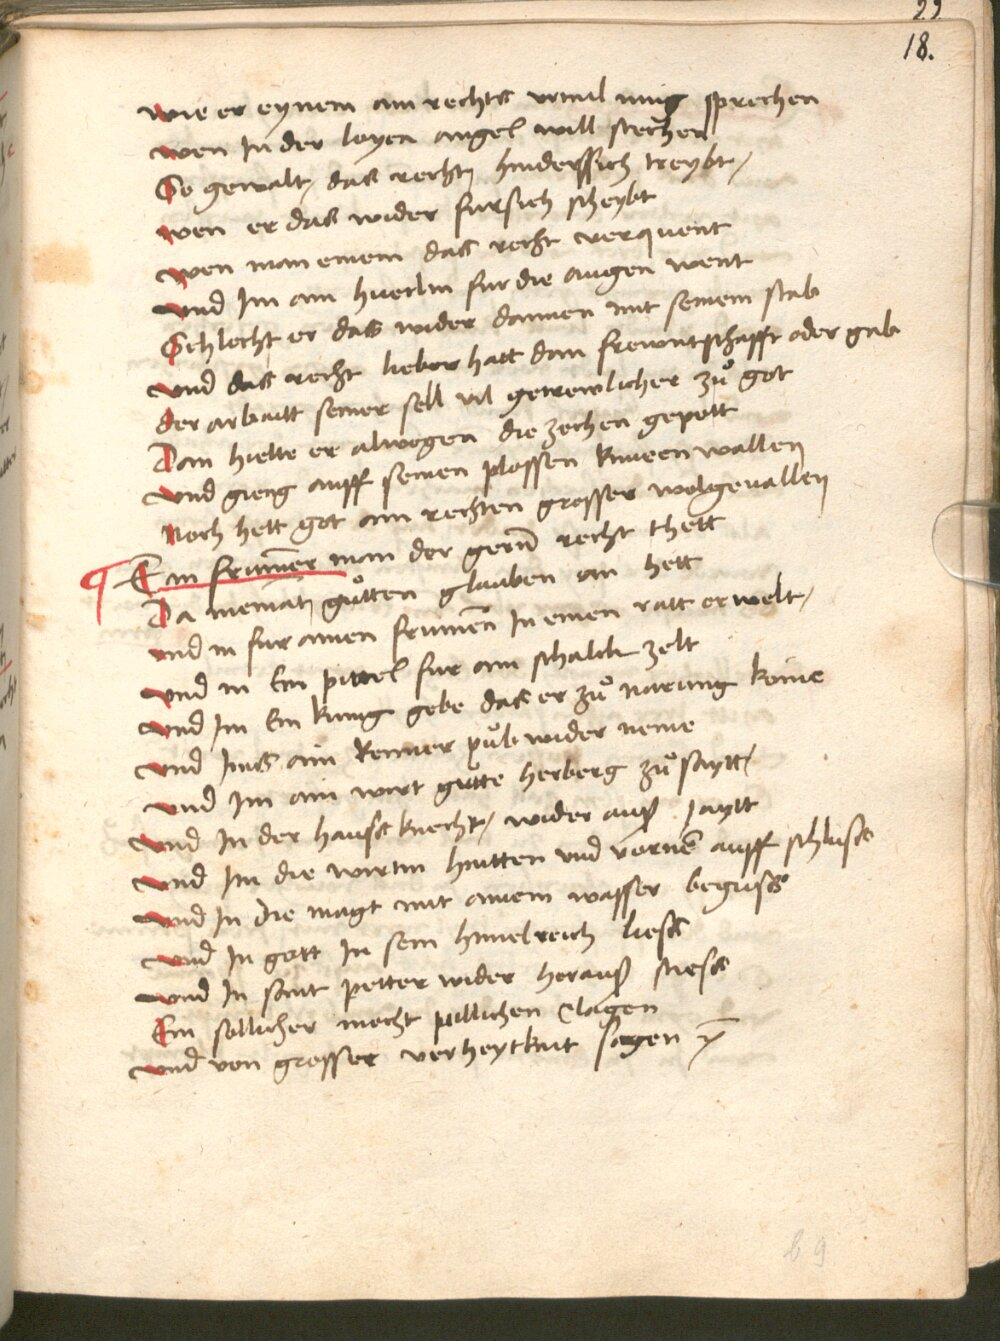 18.
wie er eynem ain rechts urtail mug sprechen
wen In der loyca angel will stechen
So gewalt das recht hinderssich treybt
wen er das wider fursich scheybt
wen man einem das recht verquent
und Im ain hüetlin fur die augen went
Schlecht er das wider dannen mit seinem stab
und das recht lieber hatt dan frewntschafft oder gab
der arbaitt seiner sell vil getrewlicher zů got
Dan hielte er alwegen die zechen gepott
und gieng auff seinen plossen knieen wallen
Noch hett got am rechten grosser wolgevallen
Ein frum̄er man der gern̄ recht thett
Da niemant gůtten glauben an hett
und in fur ainen frum̄en In einen ratt erwelt
und in Ein püttel fur ain schalck zelt
und Im Ein kunig gebe das er zů narung keme
und Ims ain Renner půb wider neme
und Im ain wirt gůtte herberg zů saytt
und In der hauss knecht wider auß Jaytt
und Im die wirtin hintten und vornen̄ auff schluss
und In die magt mit ainem wasser beguss
und In gott In sein himelreich liess
und In sant petter wider herauß stiess
Ein sollicher mecht pillichen clagen
und von grosser verheytkait sagen
b 9